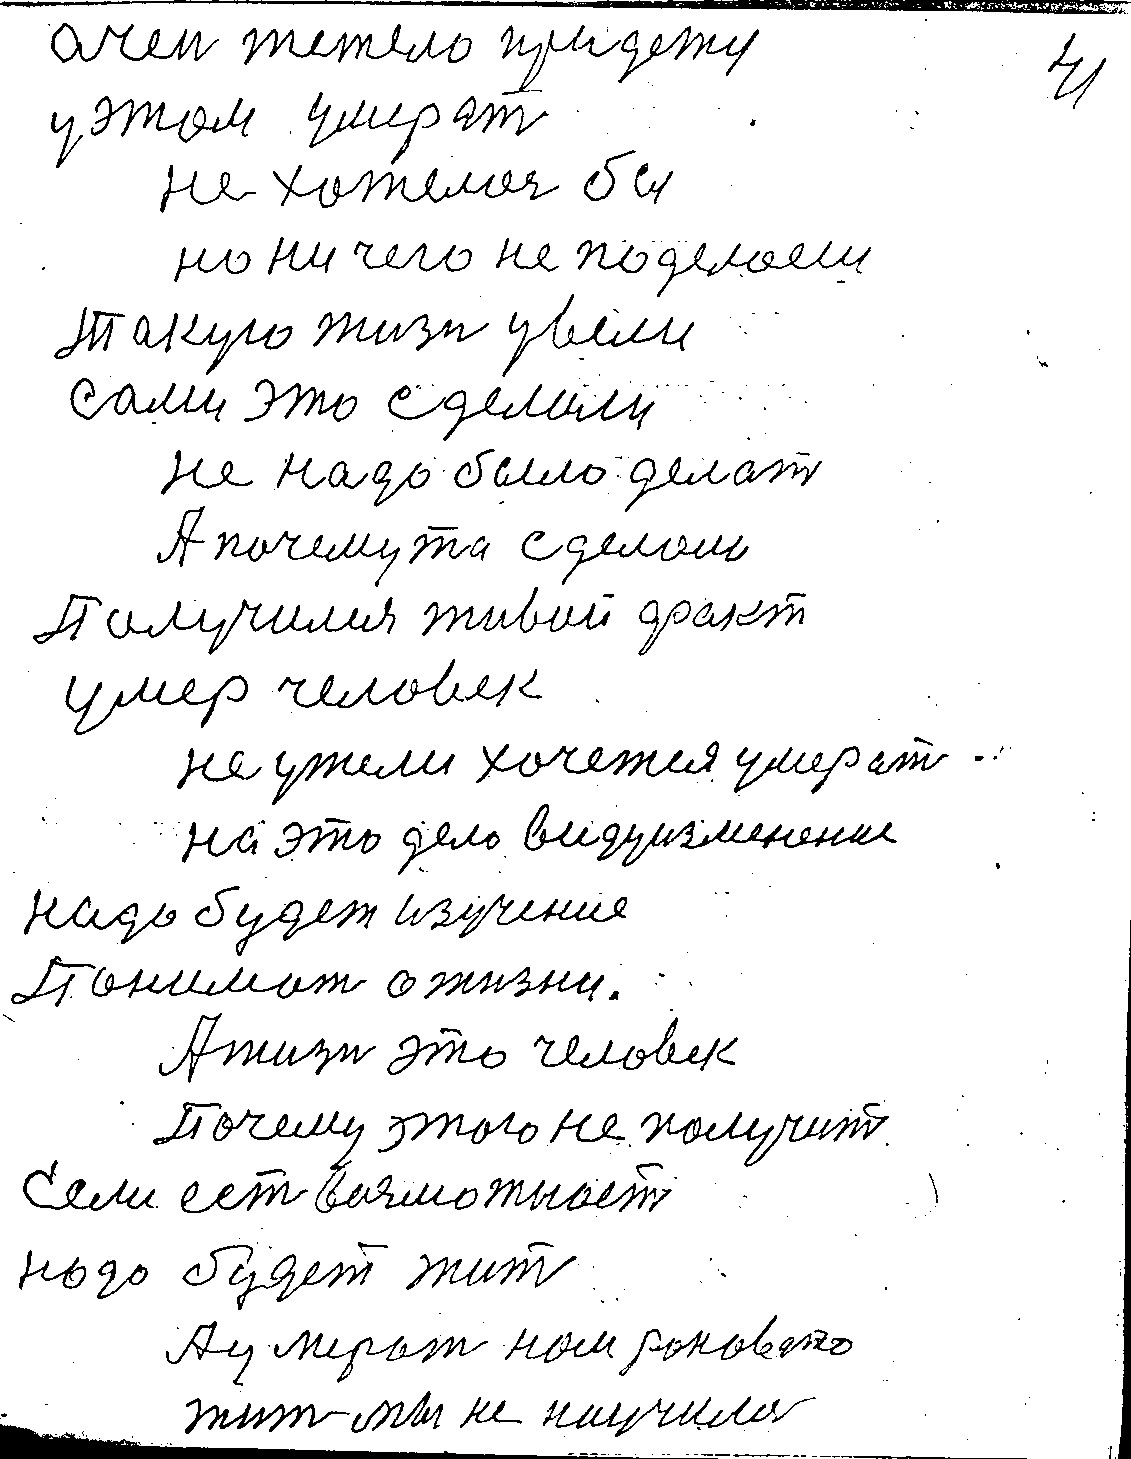 очен тежело придетця
41
у этом умират
не хотелося бы
но ни чего не поделаеш
Такую жизн увели
сами это сделали
не надо было делат
А почему та сделали
Получился живой факт
умер человек
не ужели хочется умерат
на это дело видуизменение
надо будет изучение
Понимат о жизни.
А жизн это человек
Почему этого не получит
Если ест возможност
надо будет жит
А умерат нам рановато
жит мы не научилис